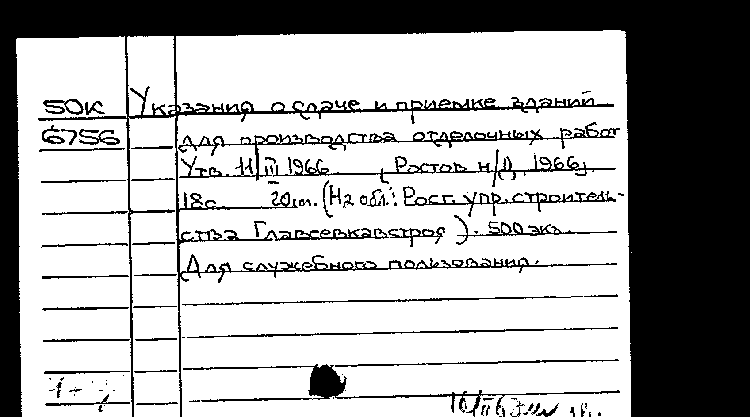 50К Указания о сдаче и приемке зданий
6756 для производства отделочных работ
Утв. 11/III 1966 [Ростов н/Д, 1966]
18с. 20см. (На обл.: Рост. упр. строитель-
ства Главсевкавстроя). 500 экз.
Для служебного пользования.